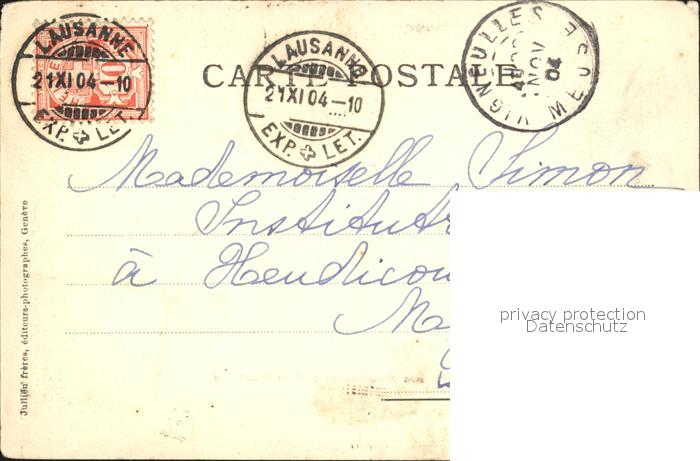 LAUSANNE
21 XI 04-10
EXP. LET.
LAUSANNE
21 XI 04-10
EXP. LET.
VIGNEULLES
MEUSE
NOV
04
CARTE POSTALE
Mademoiselle Simon
à
Jullien frères, éditeurs-photographes, Genève
privacy protection
Datenschutz